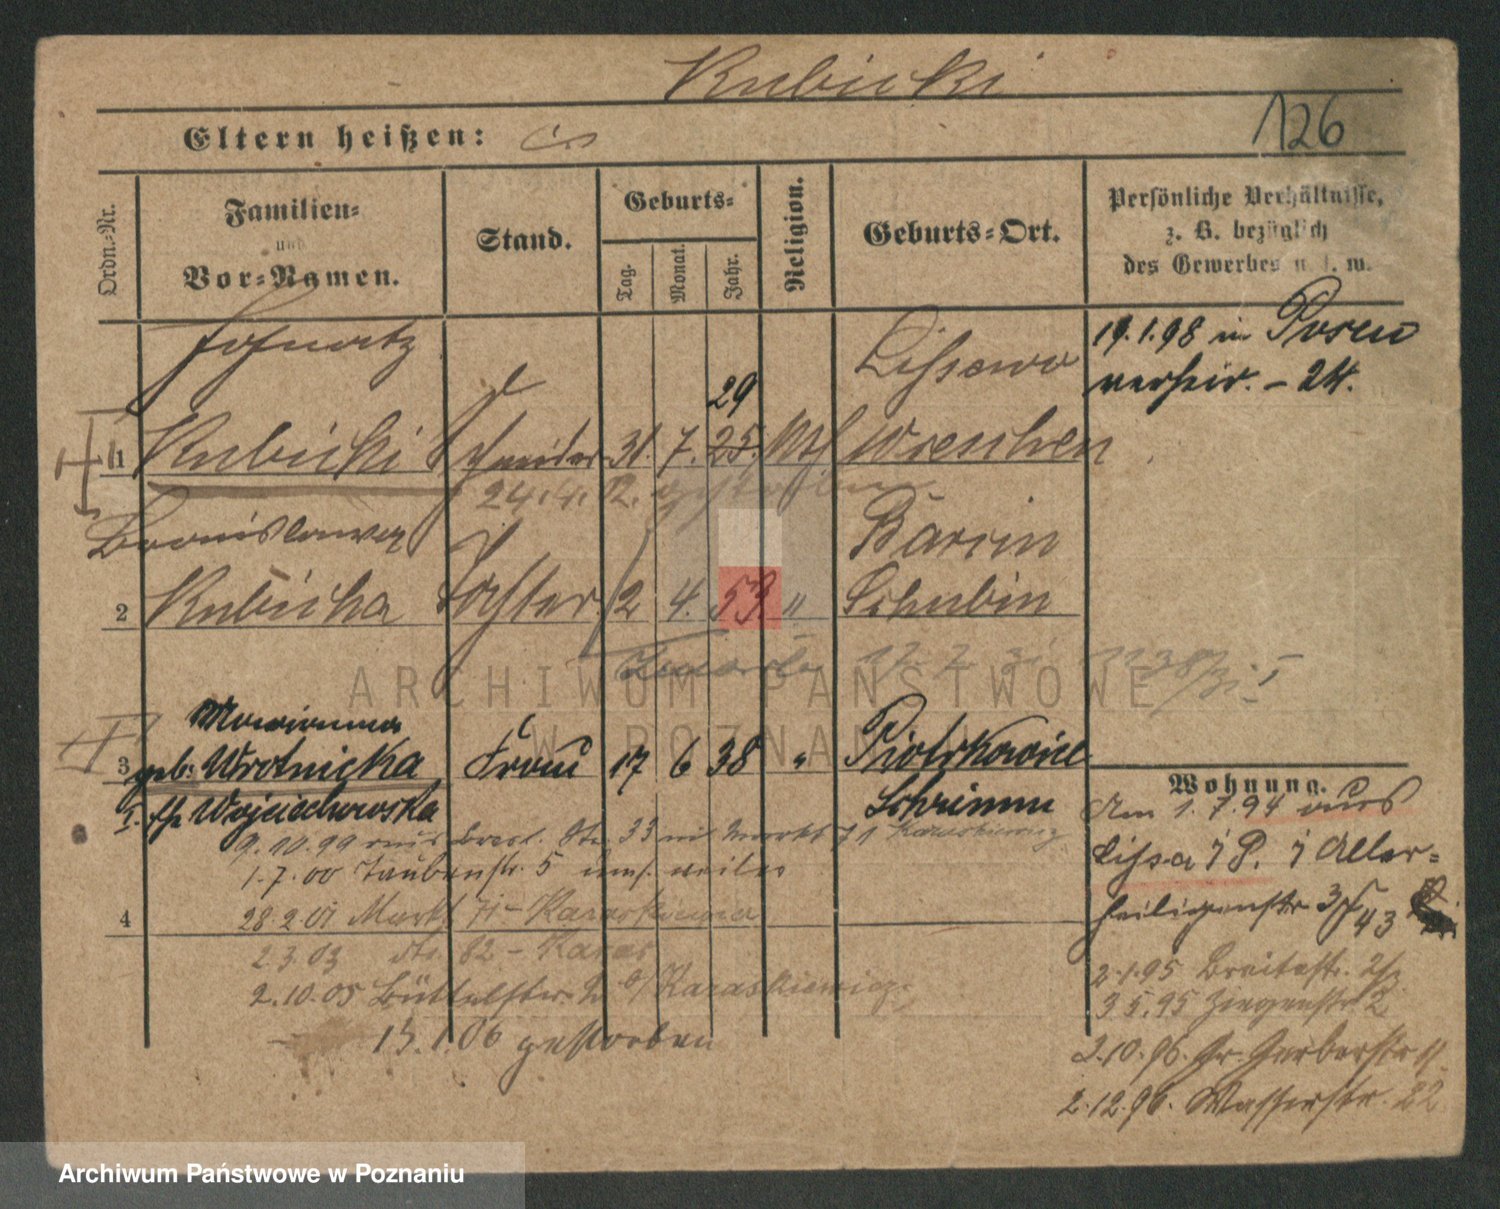 Kubicki
126
Eltern heißen:
Ordn.-Nr.
Familien-
und
Vor-Namen.
Stand.
Geburts-
Tag.
Monat.
Jahr.
Religion.
Geburts-Ort.
Persönliche Verhältnisse,
z. B. bezüglich
des Gewerbes u. s. w.
Ignatz
Lissewo
19.1.98 in Posen
verheir. – 24.
29
1 Kubicki Schneider 31. 7. 25. kth Wreschen
24.4.12. gestorben
Bronislawa
Barcin
2 Kubicka Tochter 2 4. 53. " Schubin
Marianna
3 geb: Wrotnicka Frau 17 6 38 " Piotrkowice
I. Wojciechowska
Schrimm
Wohnung.
Am 1.7.94 aus
Lissa i P. i Aller-
heiligenstr 3/5
43
9.10.99 aus Bresl. Str. 33 nu Markt 71 Karaskiewicz
1.7.00 Taubenstr. 5
28.2.01 Markt 71 – Karaskiewicz
4
2.3.03 do. 82 – Karas
2.10.05 Büttelstr. b/Karaskiewicz
13.1.06 gestorben
2.1.95 Breitestr.
3.5.95 Ziegenstr 2
2.10.96. Gr. Gerberstr
2.12.96. Wasserstr. 22
ARCHIWUM PAŃSTWOWE
W POZNANIU
Archiwum Państwowe w Poznaniu